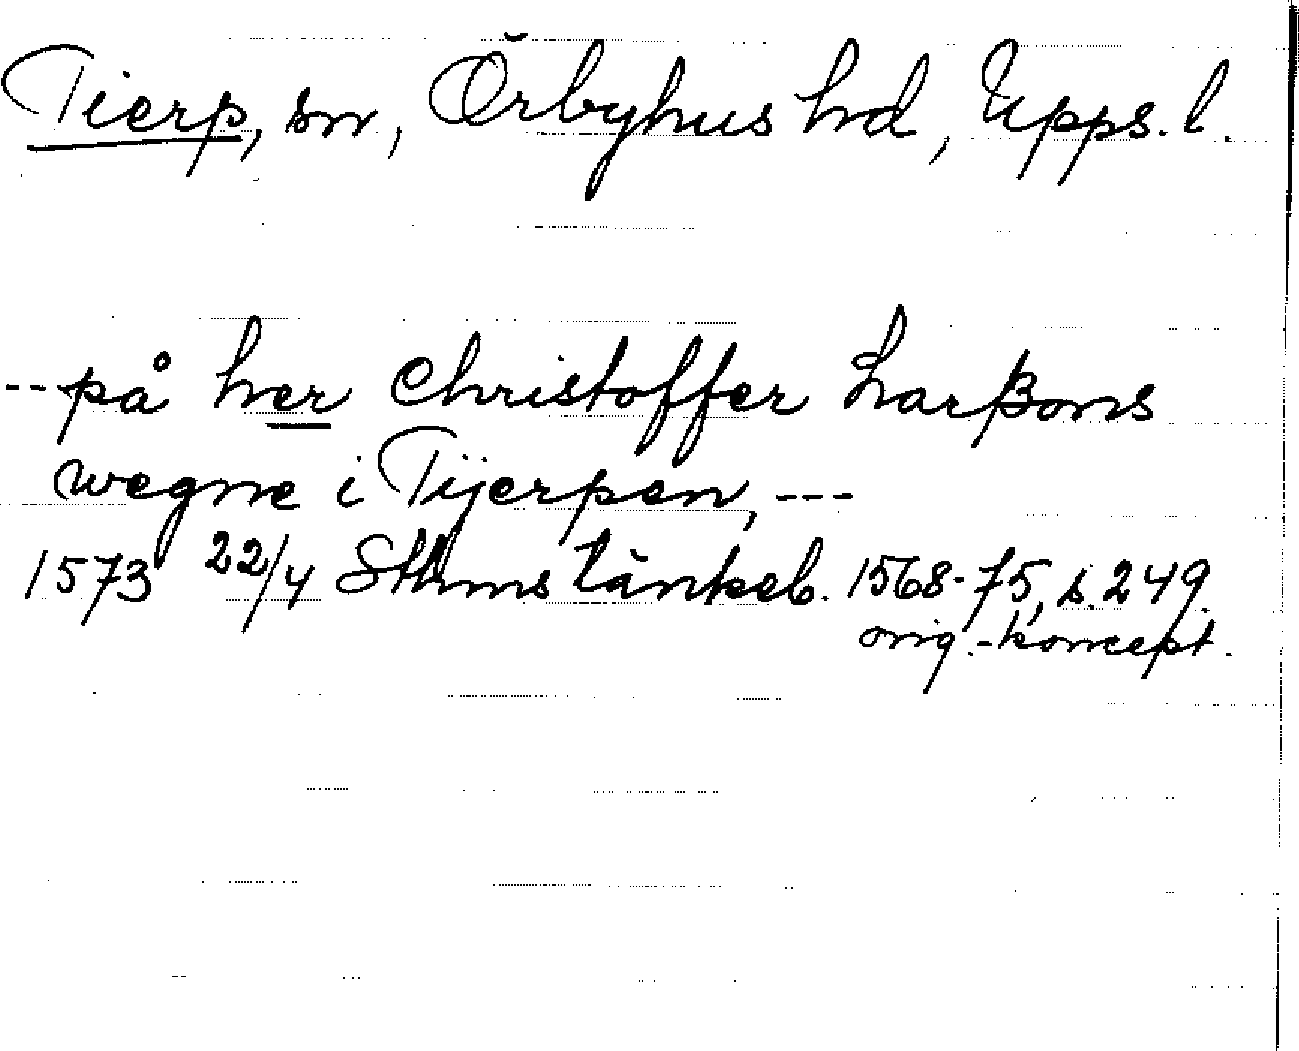 Tierp, sn, Örbyhus hd, Upps. l.
-- på her Christoffer Larßons
wegne i Tijerpen, ---
1573 22/4 Sthms tänkeb. 1568-75, s. 249.
orig.-koncept.